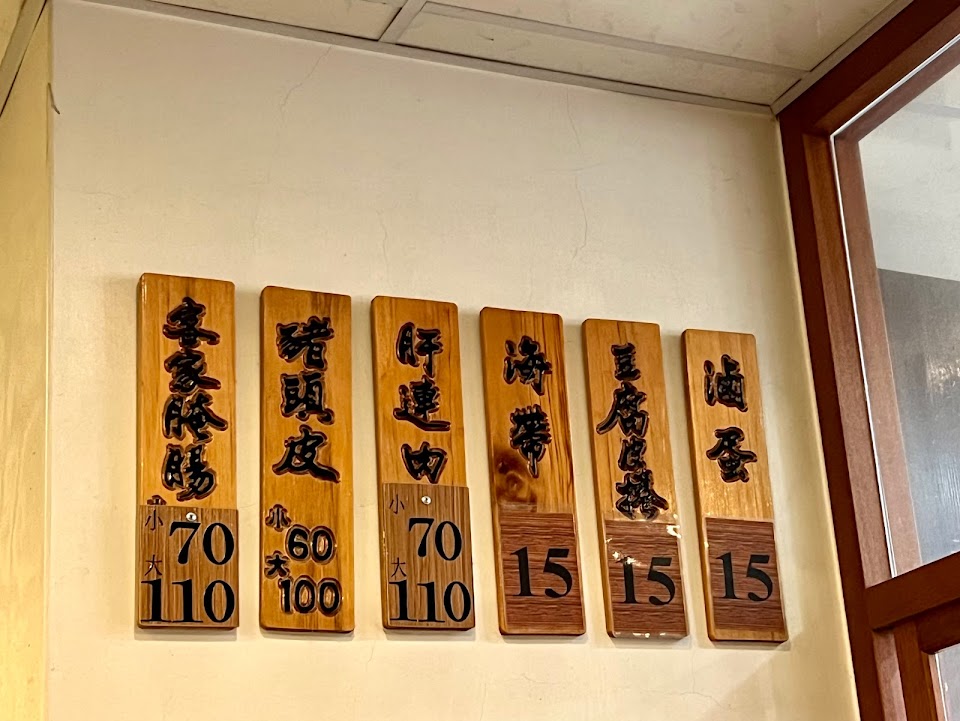 客家醃腸
小 70
大 110
豬頭皮
小 60
大 100
肝連肉
小 70
大 110
海帶
15
豆腐皮捲
15
滷蛋
15